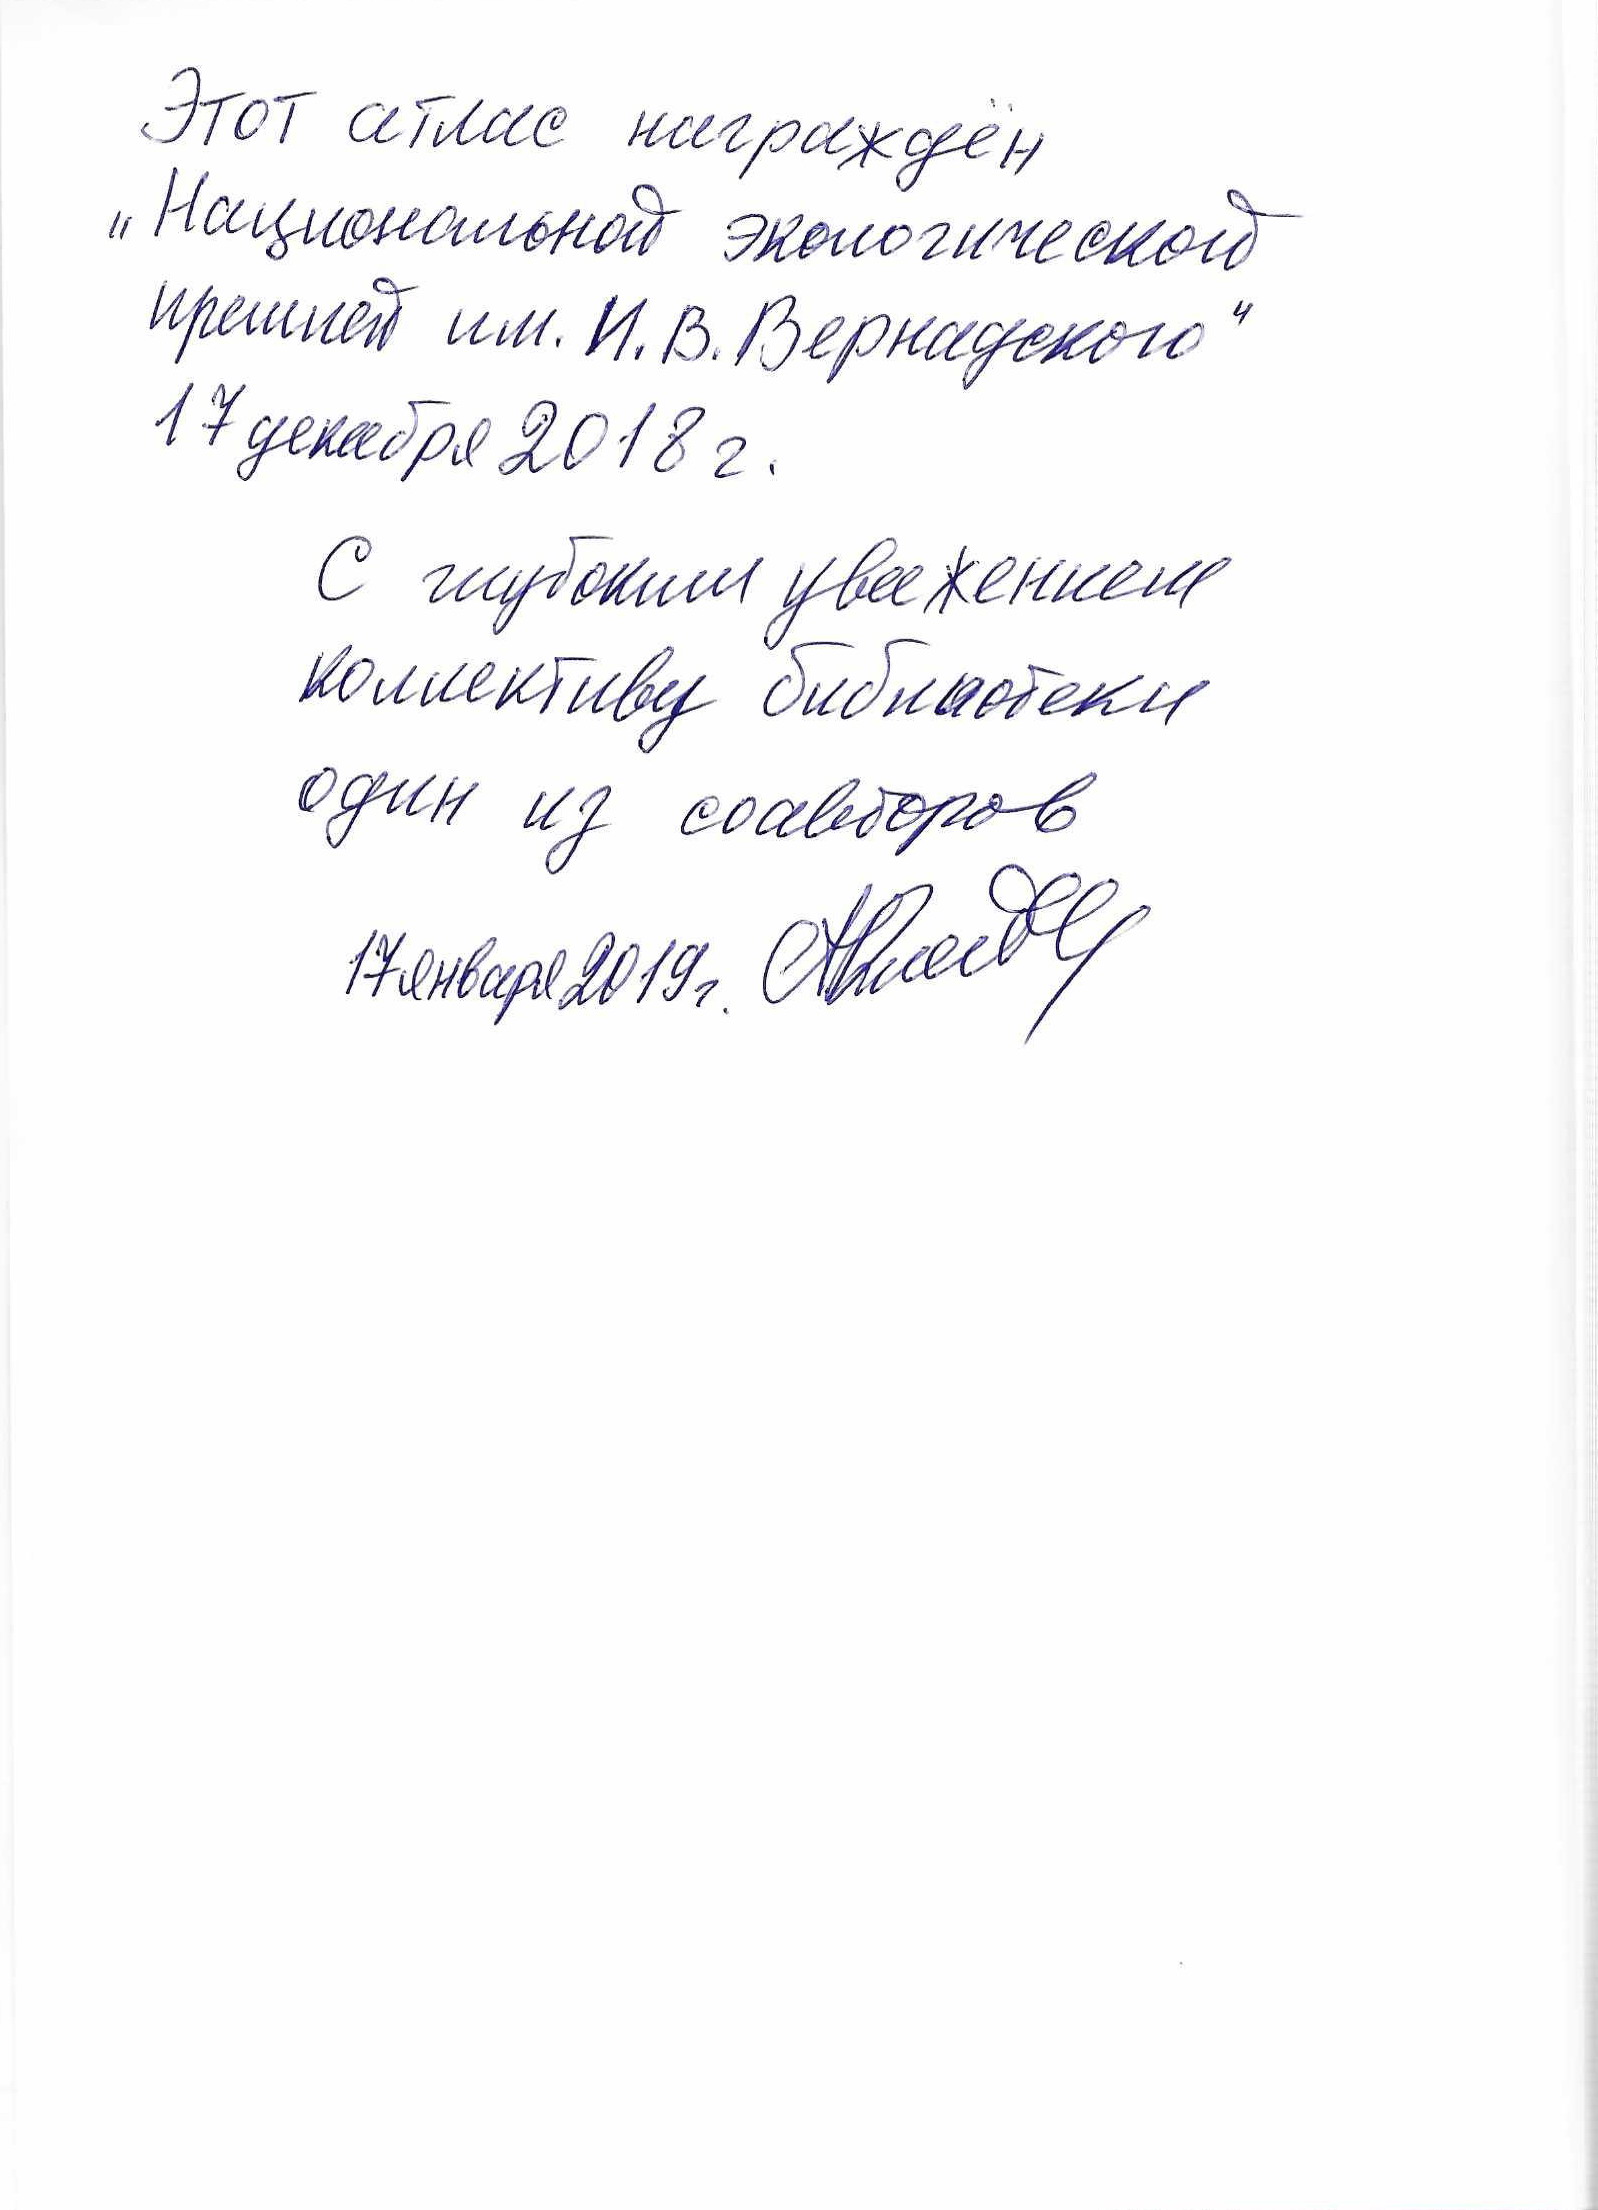 Этот атлас награждён
„Национальной экологической
премией им. И. В. Вернадского“
17 декабря 2018 г.
С глубоким уважением
коллективу библиотеки
один из соавторов
17 января 2019 г.